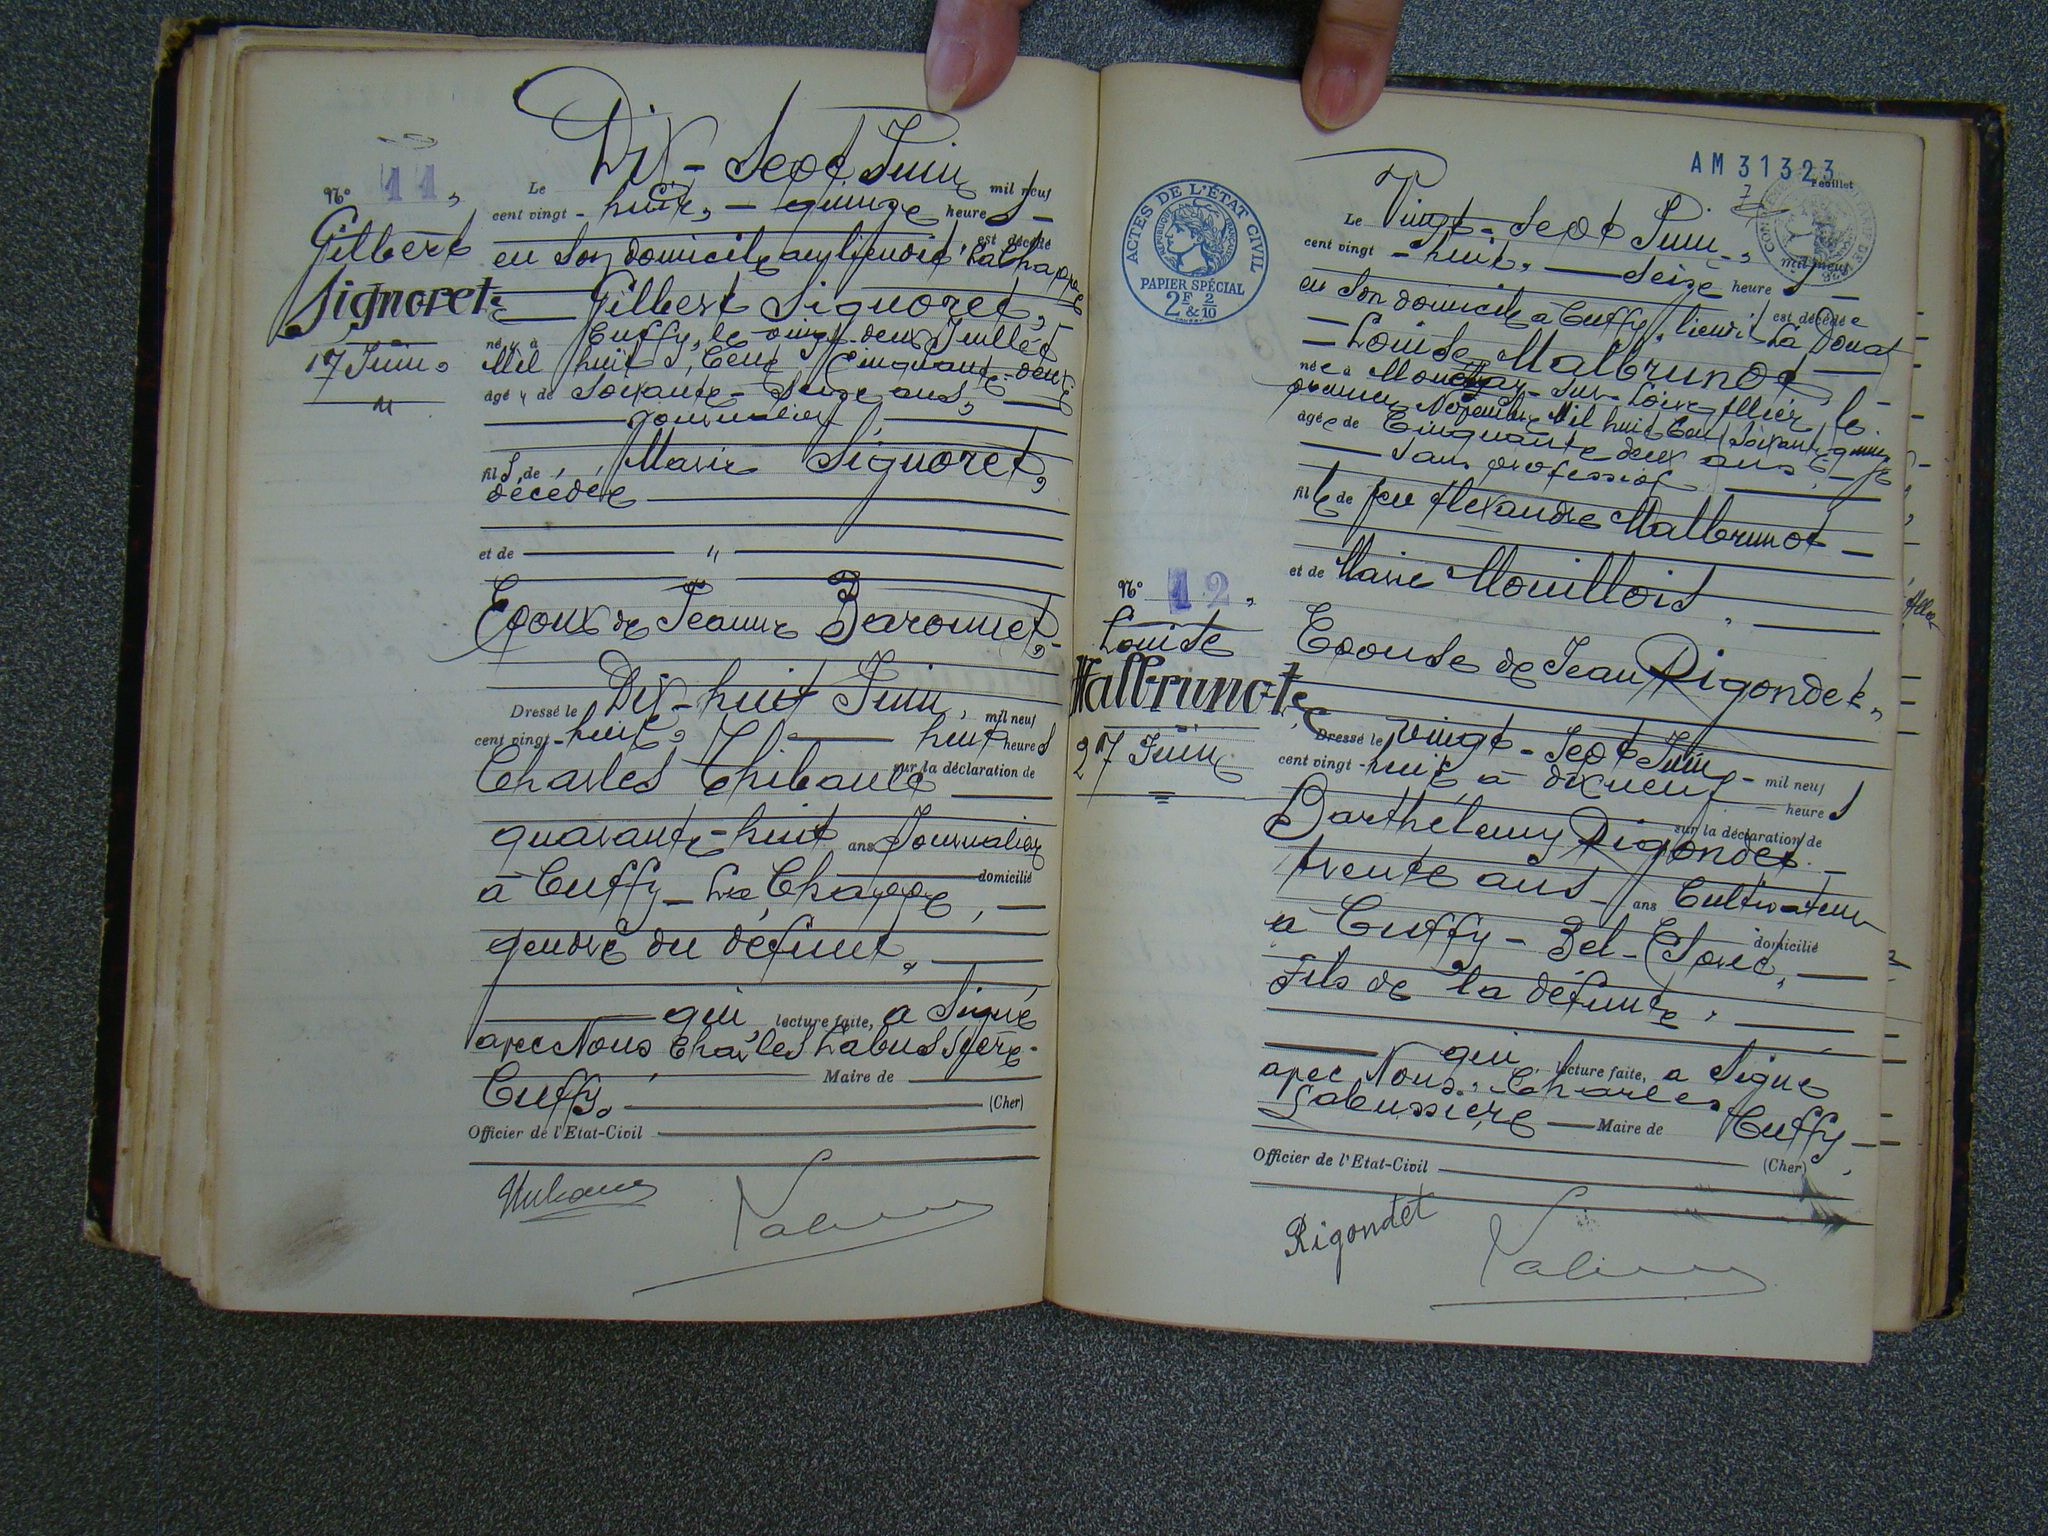 N° 11,
Gilbert
Signoret
17 Juin
Le Dix-Sept Juin mil neuf
cent vingt-huit, — quinze heures —
est décédé
en son domicile au lieudit La Chappe
— Gilbert Signoret, —
né à Cuffy, le vingt-deux Juillet
Mil huit Cent Cinquante-deux
âgé de Soixante-Seize ans, —
— journalier, —
fils de Marie Signoret,
décédée —
et de — " —
Epoux de Jeanne Baronnet,
Dressé le Dix-huit Juin, mil neuf
cent vingt-huit, — huit heures
sur la déclaration de
Charles Thibault —
quarante-huit ans Journalier
domicilié
à Cuffy - La Chappe, —
gendre du défunt, —
— qui, lecture faite, a Signé
avec Nous Charles Labussière
— Maire de —
Cuffy, — (Cher)
Officier de l'Etat-Civil —
AM 31323
Feuillet
7
ACTES DE L'ÉTAT CIVIL
RÉPUBLIQUE FRANÇAISE
PAPIER SPÉCIAL
2F & 2/10
N° 12,
Louise
Malbrunot
27 Juin
Le Vingt-Sept Juin, mil neuf
cent vingt-huit, — Seize heures —
est décédée
en Son domicile à Cuffy, lieudit La Douat
— Louise Malbrunot —
née à Monetay-Sur-Loire, Allier, le
premier Novembre Mil huit Cent Soixante quinze
âgée de Cinquante deux ans, —
— Sans profession —
fille de feu Alexandre Malbrunot —
et de Marie Mouillois, —
Epouse de Jean Rigondet,
Dressé le Vingt-Sept Juin, — mil neuf
cent vingt-huit, à dixneuf — heures
sur la déclaration de
Barthélemy Rigondet —
trente ans — ans Cultivateur
domicilié
à Cuffy - Bel-Esprit, —
Fils de la défunte, —
— qui, lecture faite, a Signé
avec Nous, Charles
Labussière — Maire de Cuffy, —
Officier de l'Etat-Civil — (Cher)
Rigondet